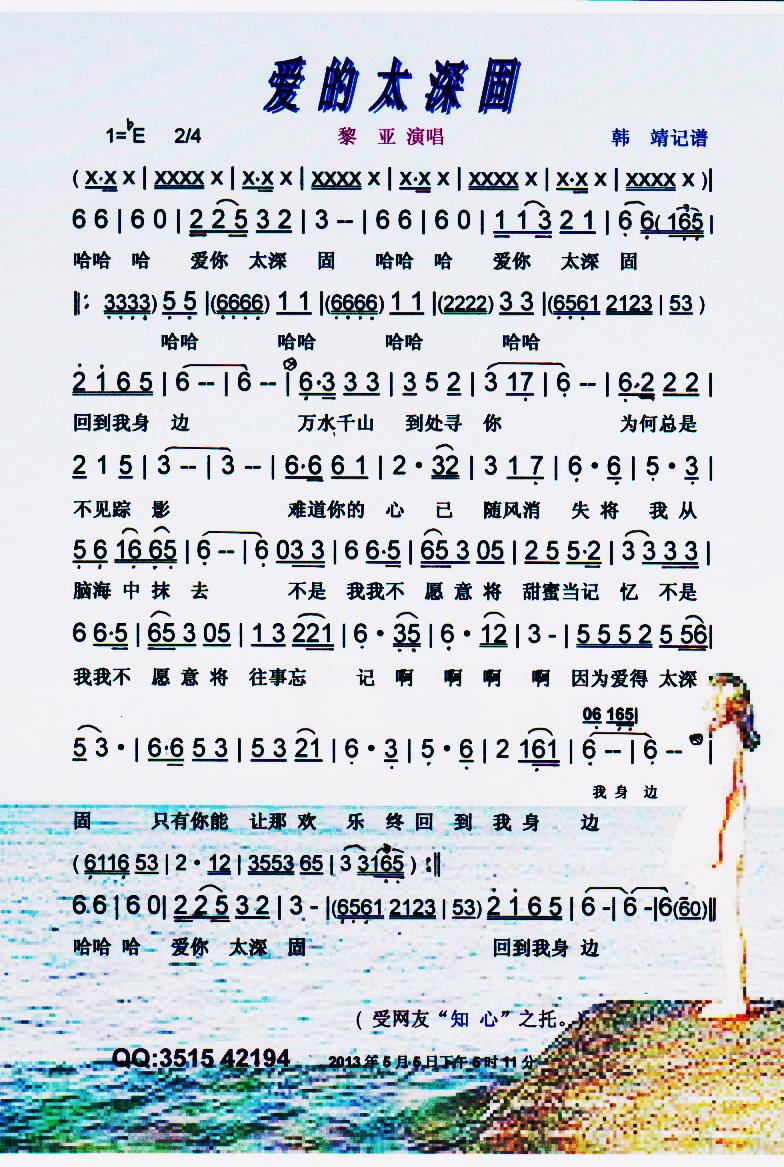 爱的太深固
1=♭E 2/4 黎 亚 演唱 韩 靖记谱
( X·X X | XXXX X | X·X X | XXXX X | X·X X | XXXX X | X·X X | XXXX X )|
6 6 | 6 0 | 2 2 5 3 2 | 3 -- | 6 6 | 6 0 | 1 1 3 2 1 | 6 6 ( 165 |
哈哈 哈 爱你 太深 固 哈哈 哈 爱你 太深 固
‖: 3333) 5 5 |(6666) 1 1 |(6666) 1 1 |(2222) 3 3 |(6561 2123 | 53 )
哈哈 哈哈 哈哈 哈哈
2 1 6 5 | 6 -- | 6 -- | 6·3 3 3 | 3 5 2 | 3 17 | 6 -- | 6·2 2 2 |
回到我身 边 万水千山 到处寻 你 为何总是
2 1 5 | 3 -- | 3 -- | 6·6 6 1 | 2 · 32 | 3 1 7 | 6 · 6 | 5 · 3 |
不见踪 影 难道你的 心 已 随风消 失 将 我 从
5 6 16 65 | 6 -- | 6 03 3 | 6 6·5 | 65 3 05 | 2 5 5·2 | 3 3 3 3 |
脑海 中 抹 去 不是 我我不 愿 意 将 甜蜜当记 忆 不是
6 6·5 | 65 3 05 | 1 3 221 | 6 · 35 | 6 · 12 | 3 - | 5 5 5 2 5 56 |
我我不 愿 意 将 往事忘 记 啊 啊 啊 啊 因为爱得 太深
06 165|
5 3 · | 6·6 5 3 | 5 3 21 | 6 · 3 | 5 · 6 | 2 161 | 6 -- | 6 -- |
我 身 边
固 只有你能 让那 欢 乐 终 回 到 我 身 边
( 6116 53 | 2 · 12 | 3553 65 | 3 3165 ) :‖
6 6 | 6 0| 2 2 5 3 2 | 3 - |(6561 2123 | 53) 2 1 6 5 | 6 - | 6 -|6(60)‖
哈哈 哈 爱你 太深 固 回到我身 边
( 受网友“知 心”之托。)
QQ:3515 42194 2013 年 5 月 5 日下午 5 时 11 分